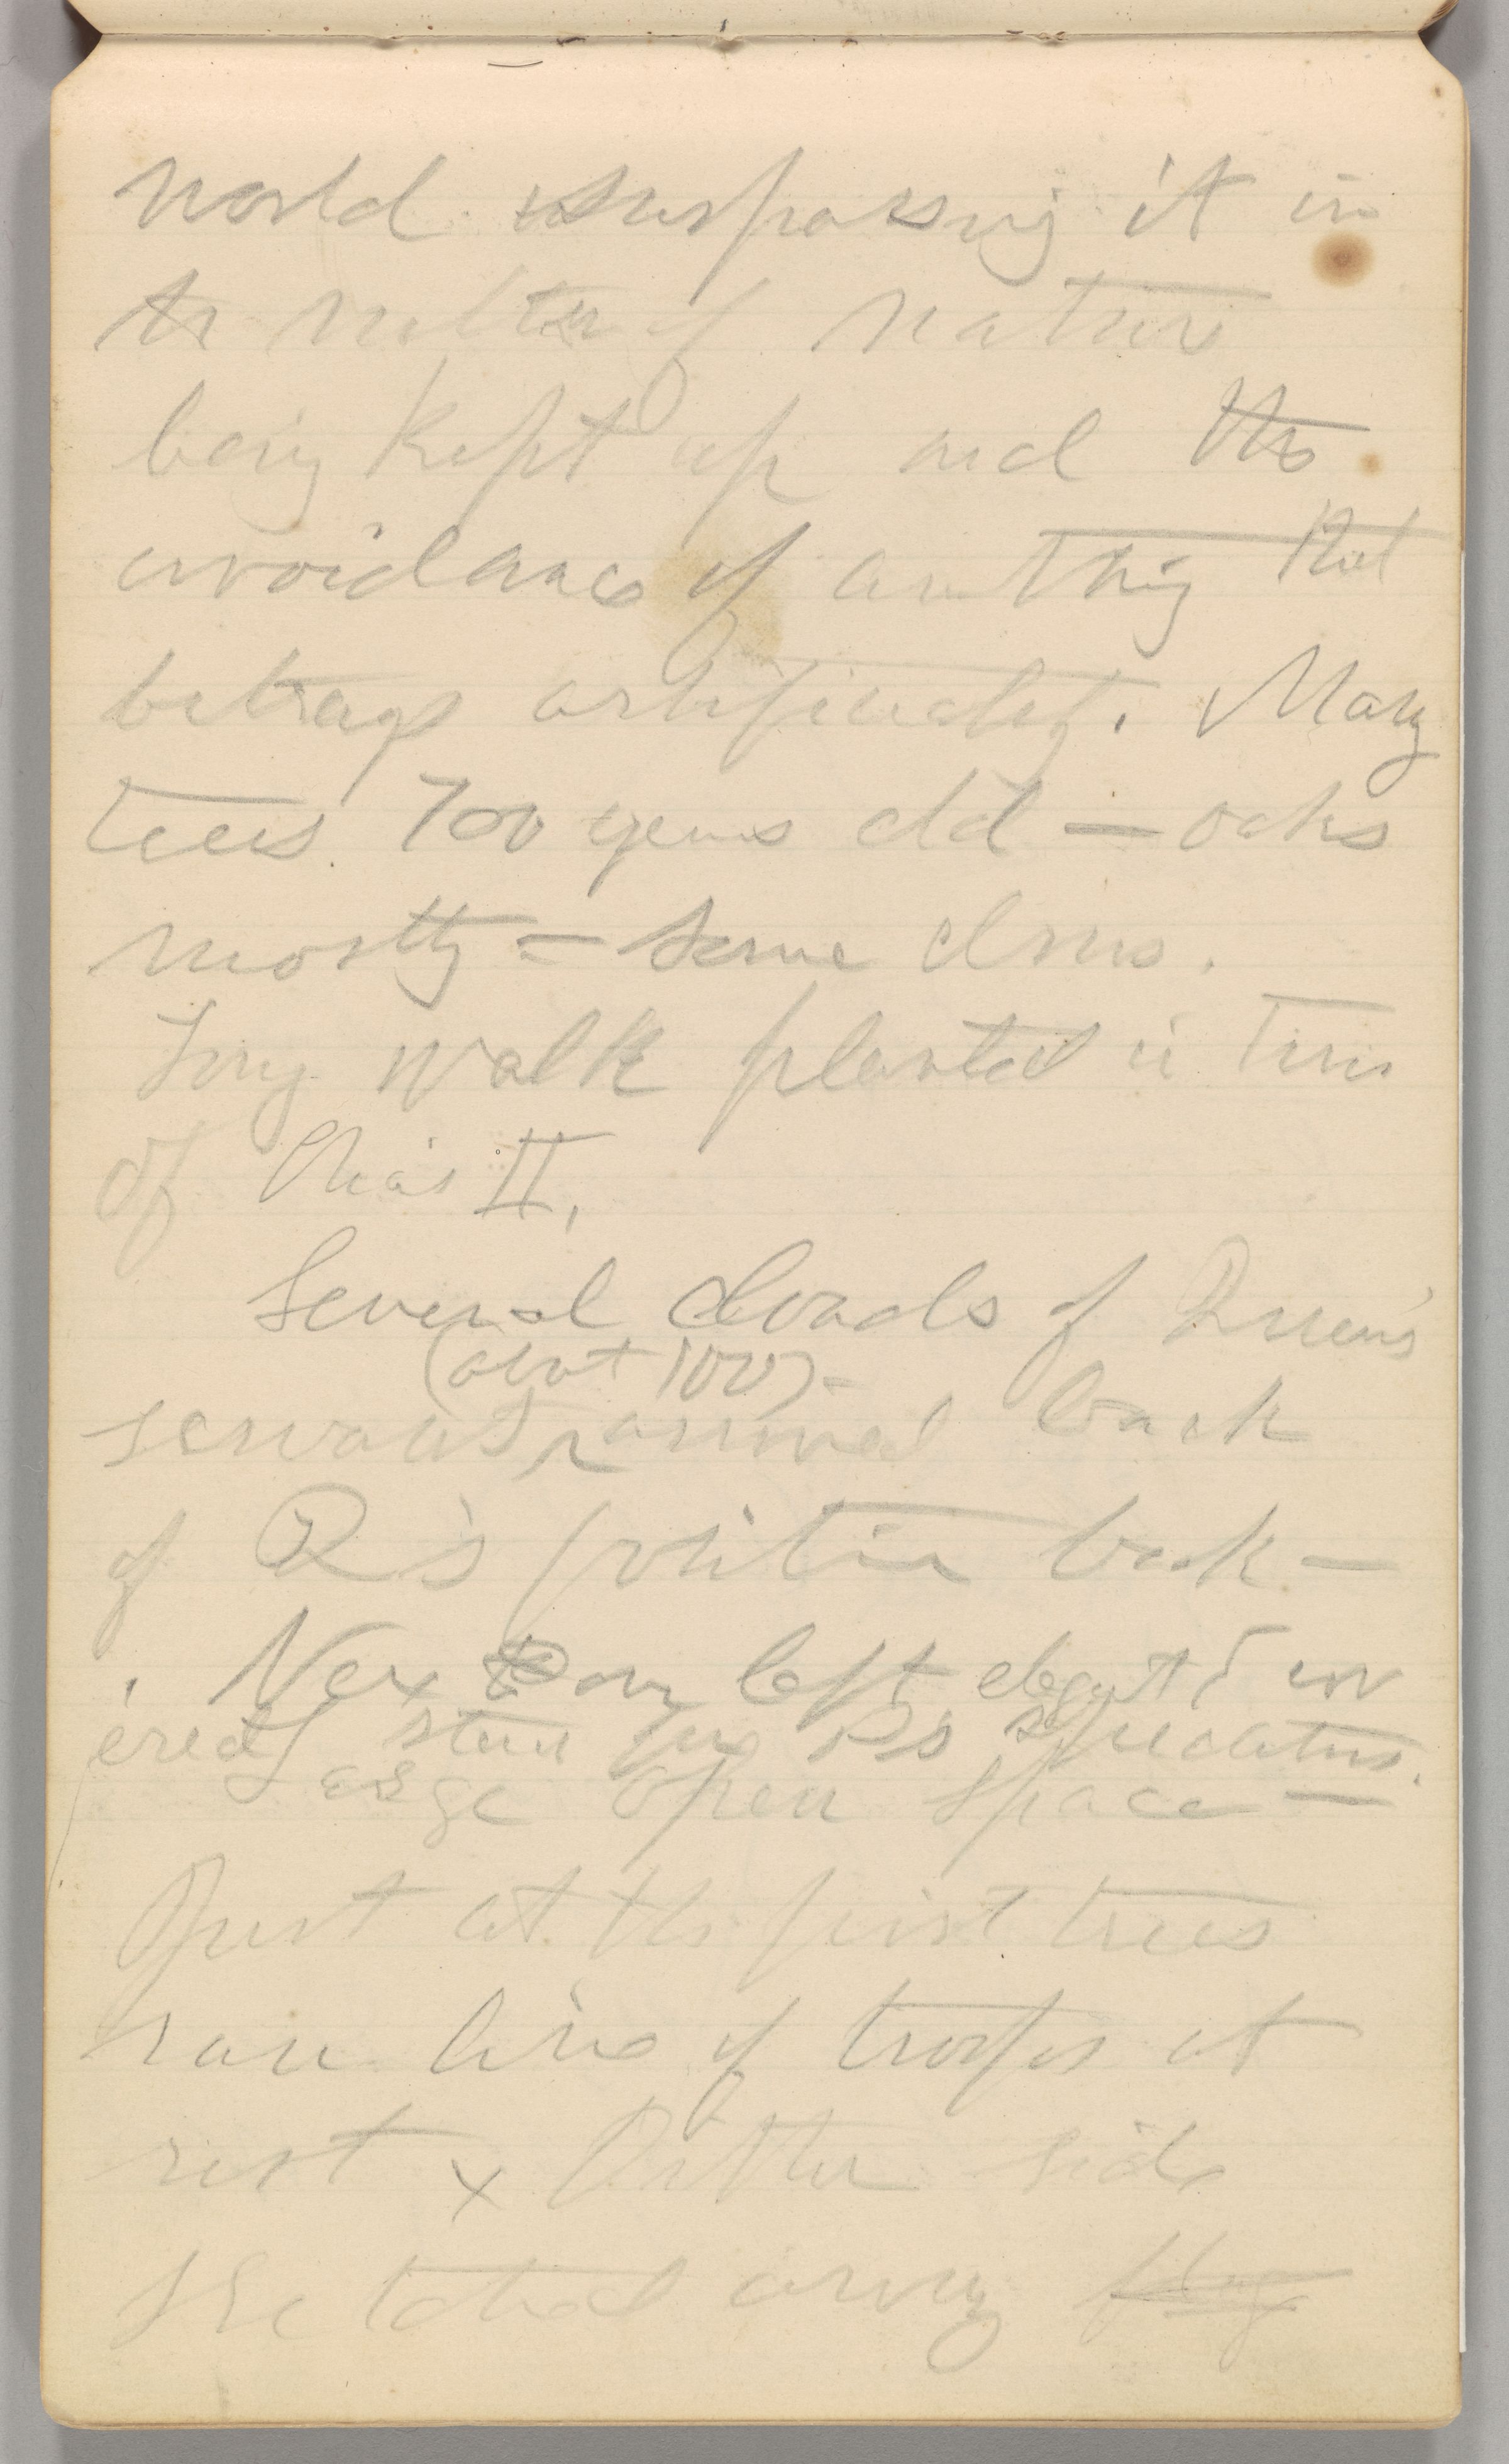 world surpassing it in
the matter of nature
being kept up and the
avoidance of anything that
betrays artificiality. Many
trees 700 years old — oaks
mostly — some elms.
Long walk planted in time
of Chas II.
Several loads of Queen's
(about 100)
servants arrived back
of Q's position back —
Next on left elegant
erect stand for Q's spectators.
Large open space —
Just at the first trees
ran line of troops at
rest x Either side
stretched away